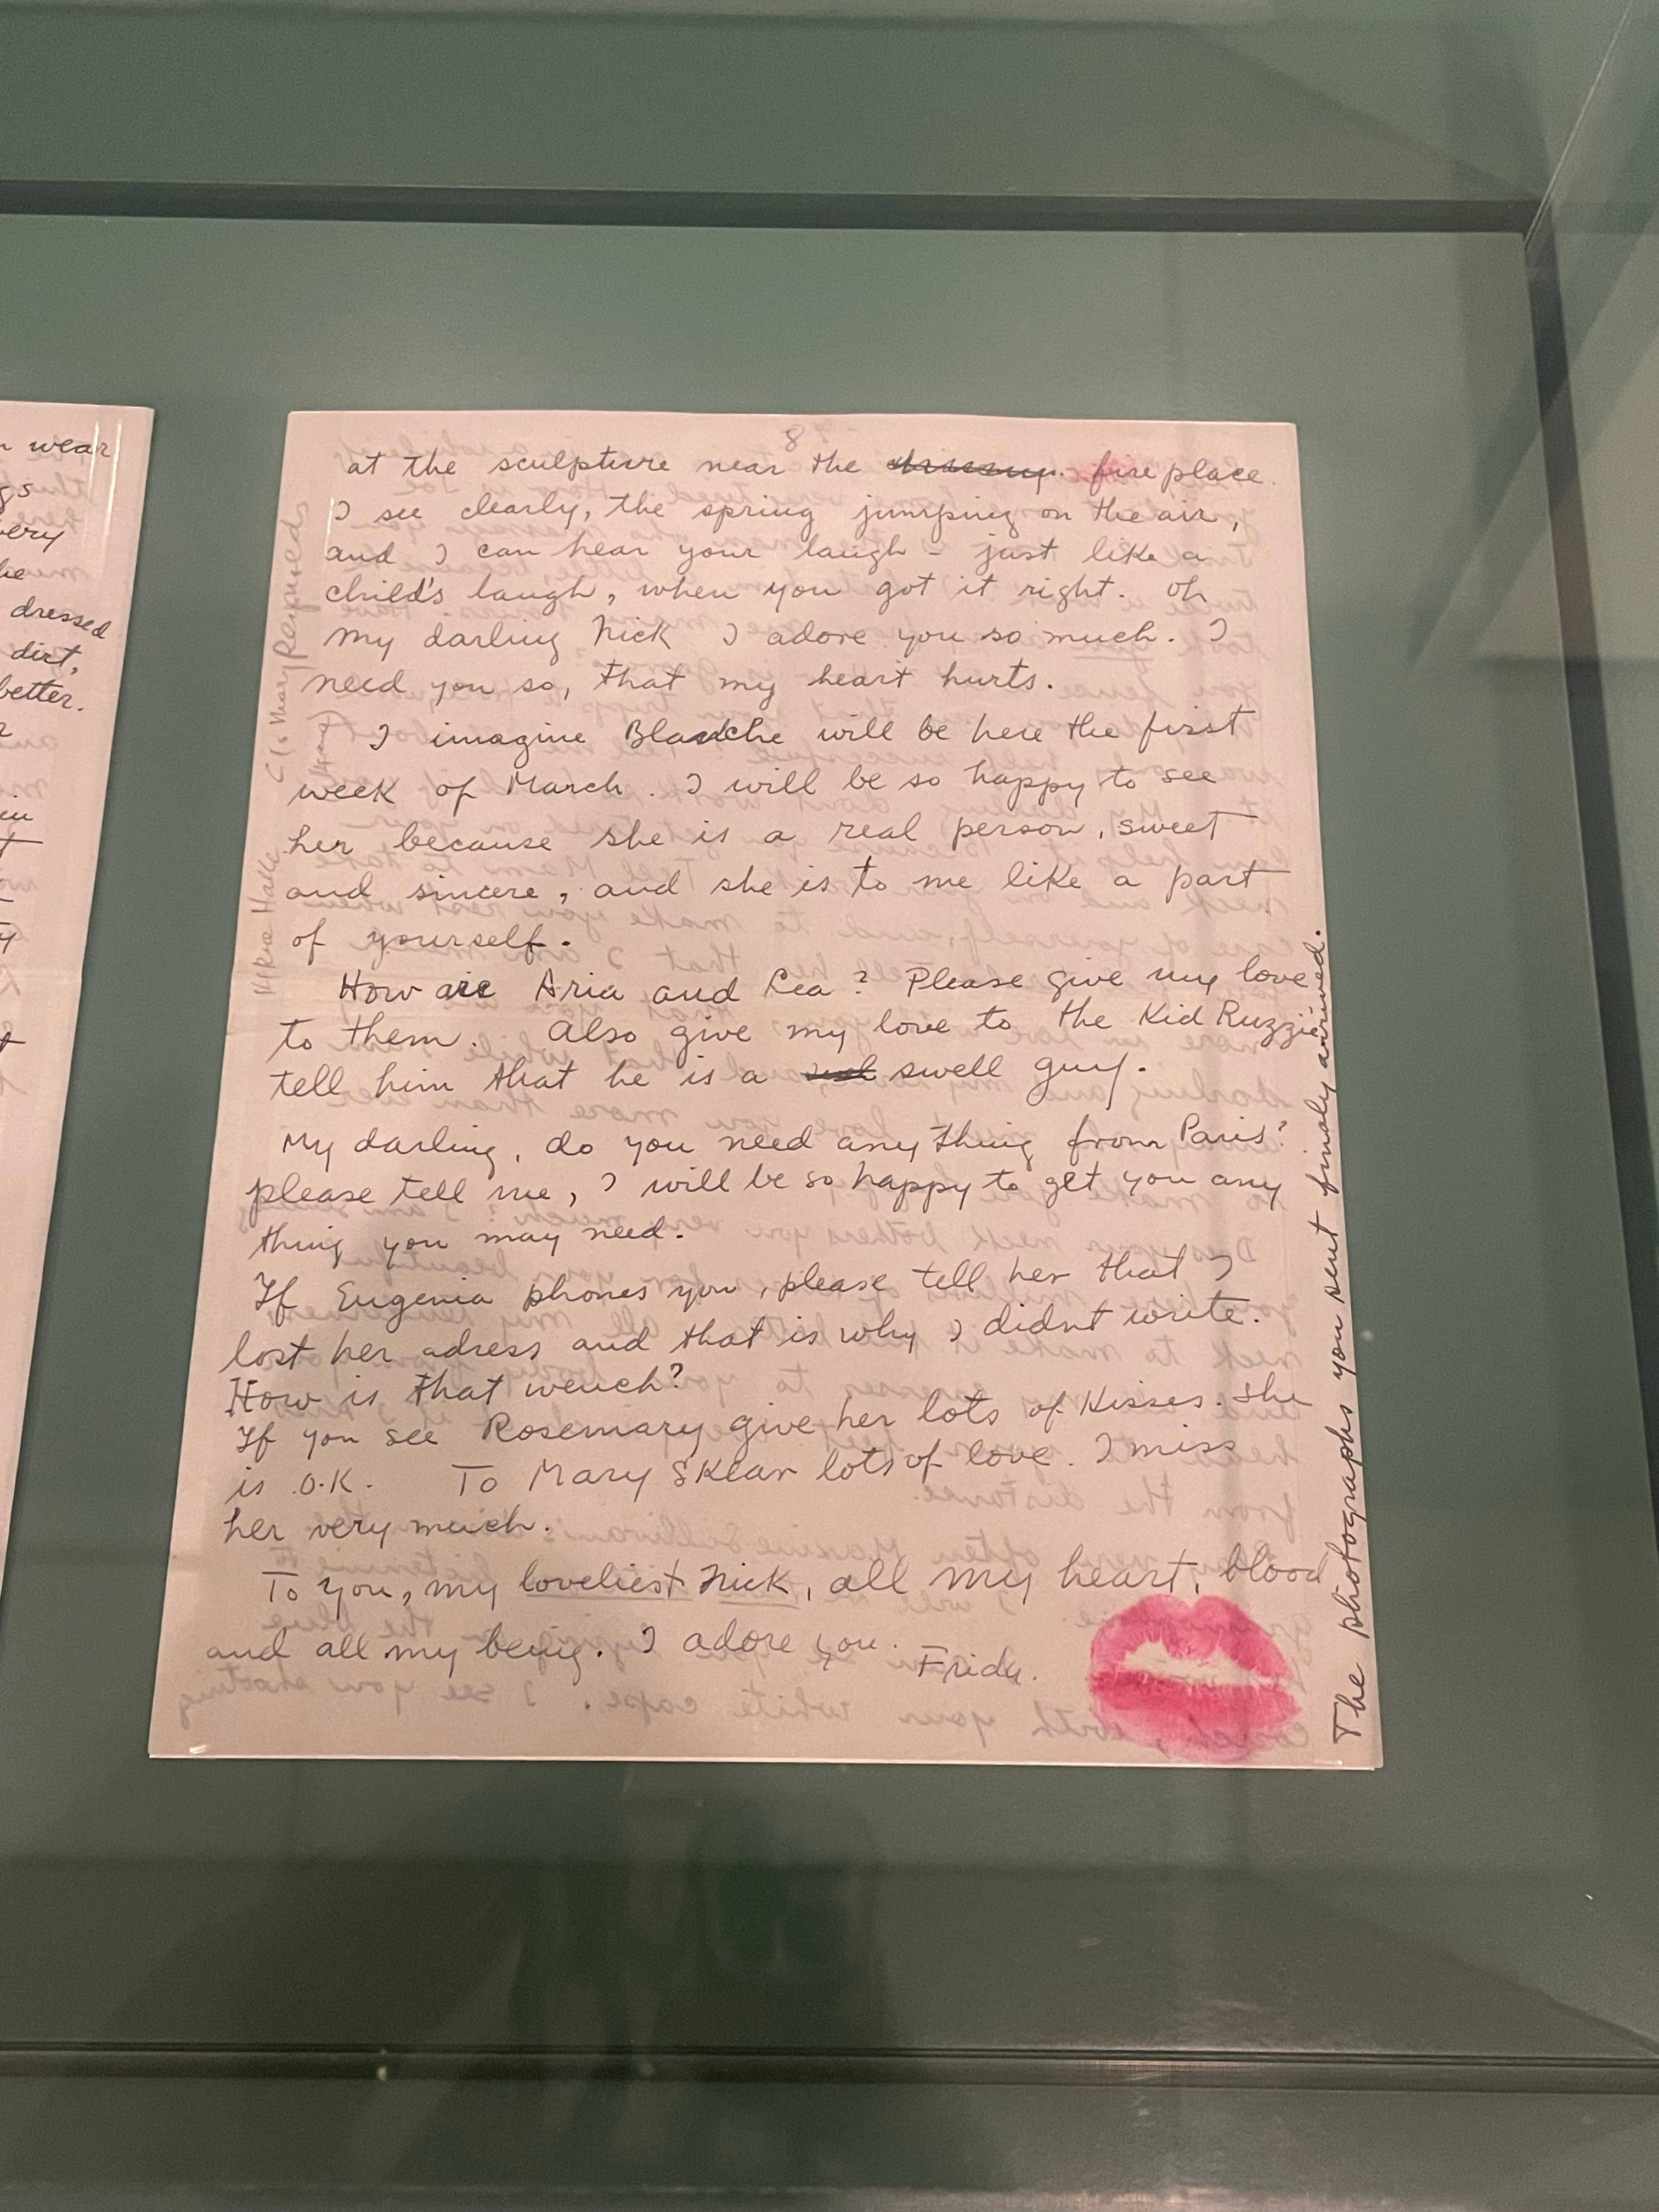 wear
gs
very
he
dressed
dirt,
better.
8
at the sculpture near the fire place.
I see clearly, the spring jumping on the air,
and I can hear your laugh – just like a
child's laugh, when you got it right. Oh
my darling Nick I adore you so much. I
need you so, that my heart hurts.
I imagine Blanche will be here the first
week of March. I will be so happy to see
her because she is a real person, sweet
and sincere, and she is to me like a part
of yourself.
How are Aria and Lea? Please give my love
to them. Also give my love to the Kid Ruzzie
tell him that he is a swell guy.
My darling, do you need any thing from Paris?
please tell me, I will be so happy to get you any
thing you may need.
If Eugenia phones you, please tell her that I
lost her adress and that is why I didnt write.
How is that wench?
If you see Rosemary give her lots of Kisses. She
is O.K. To Mary Sklar lots of love. I miss
her very much.
To you, my loveliest Nick, all my heart, blood
and all my being. I adore you. Frida.
The photographs you sent finaly arrived.